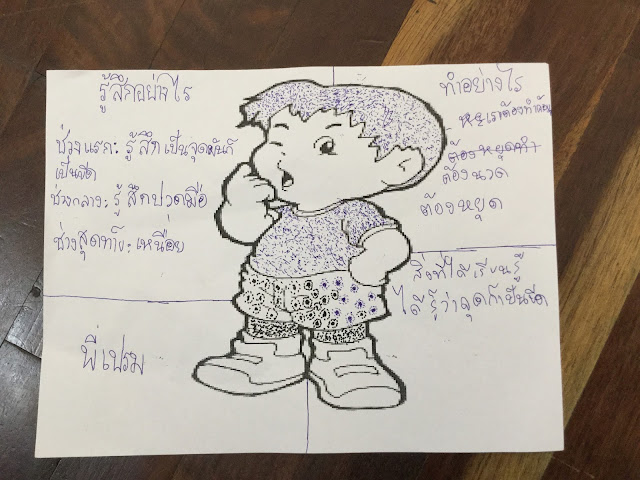 รู้สึกอย่างไร
ช่วงแรก: รู้สึกเป็นจุดมันก็
เป็นขีด
ช่วงกลาง: รู้สึกปวดมือ
ช่วงสุดท้าย: เหนื่อย
ทำอย่างไร
ต้องหยุดทำ
ต้องนวด
ต้องหยุด
สิ่งที่ได้เรียนรู้
ได้รู้ว่าจุดก็เป็นขีด
พี่เปรม